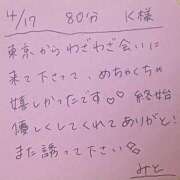 4/17 80分 K様
東京からわざわざ会いに
来て下さって、めちゃくちゃ
嬉しかったです♡♡ 終始
優しくしてくれてありがと!
また誘って下さい
みと